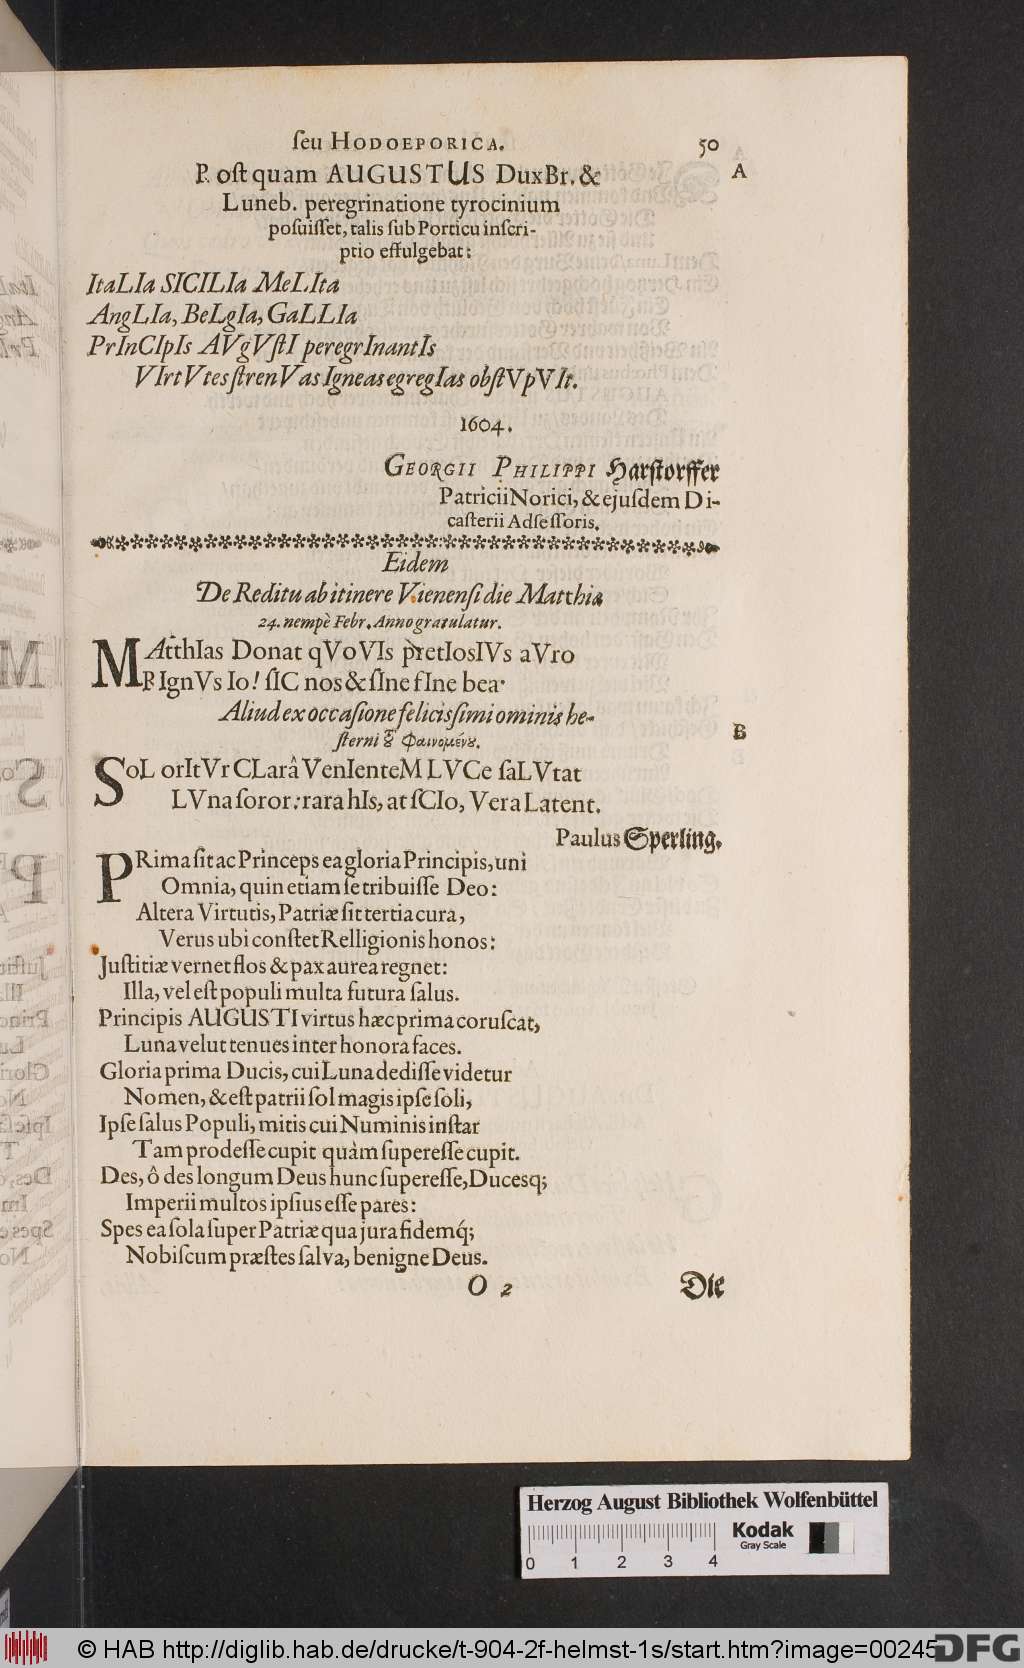 ſeu HODOEPORICA. 50
P. oſt quam AUGUSTUS Dux Br. & A
Luneb. peregrinatione tyrocinium
poſuiſſet, talis ſub Porticu inſcri-
ptio effulgebat:
ItaLIa SICILIa MeLIta
AngLIa, BeLgIa, GaLLIa
PrInCIpIs AVgVſtI peregrInantIs
VIrtVtes ſtrenVas Igneas egregIas obſtVpVIt.
1604.
GEORGII PHILIPPI Harſtorffer
Patricii Norici, & ejuſdem Di-
caſterii Adſeſſoris.
Eidem
De Reditu ab itinere Vienenſi die Matthiæ
24. nempè Febr. Anno gratulatur.
MAtthIas Donat qVoVIs pretIosIVs aVro
PIgnVs Io! ſIC nos & ſIne fIne bea.
Aliud ex occaſione feliciſſimi ominis he-
ſterni ȣ̃ Φαινομένȣ. B
SoL orItVr CLarâ VenIenteM LVCe ſaLVtat
LVna ſoror: rara hIs, at ſCIo, Vera Latent.
Paulus Sperling.
PRima ſit ac Princeps ea gloria Principis, uni
Omnia, quin etiam ſe tribuiſſe Deo:
Altera Virtutis, Patriæ ſit tertia cura,
Verus ubi conſtet Relligionis honos:
Juſtitiæ vernet flos & pax aurea regnet:
Illa, vel eſt populi multa futura ſalus.
Principis AUGUSTI virtus hæc prima coruſcat,
Luna velut tenues inter honora faces.
Gloria prima Ducis, cui Luna dediſſe videtur
Nomen, & eſt patrii ſol magis ipſe ſoli,
Ipſe ſalus Populi, mitis cui Numinis inſtar
Tam prodeſſe cupit quàm ſupereſſe cupit.
Des, ô des longum Deus hunc ſupereſſe, Ducesq;
Imperii multos ipſius eſſe pares:
Spes ea ſola ſuper Patriæ qua jura fidemq́;
Nobiſcum præſtes ſalva, benigne Deus.
O 2 Die
Herzog August Bibliothek Wolfenbüttel
Kodak
Gray Scale
0 1 2 3 4
© HAB http://diglib.hab.de/drucke/t-904-2f-helmst-1s/start.htm?image=00245
DFG